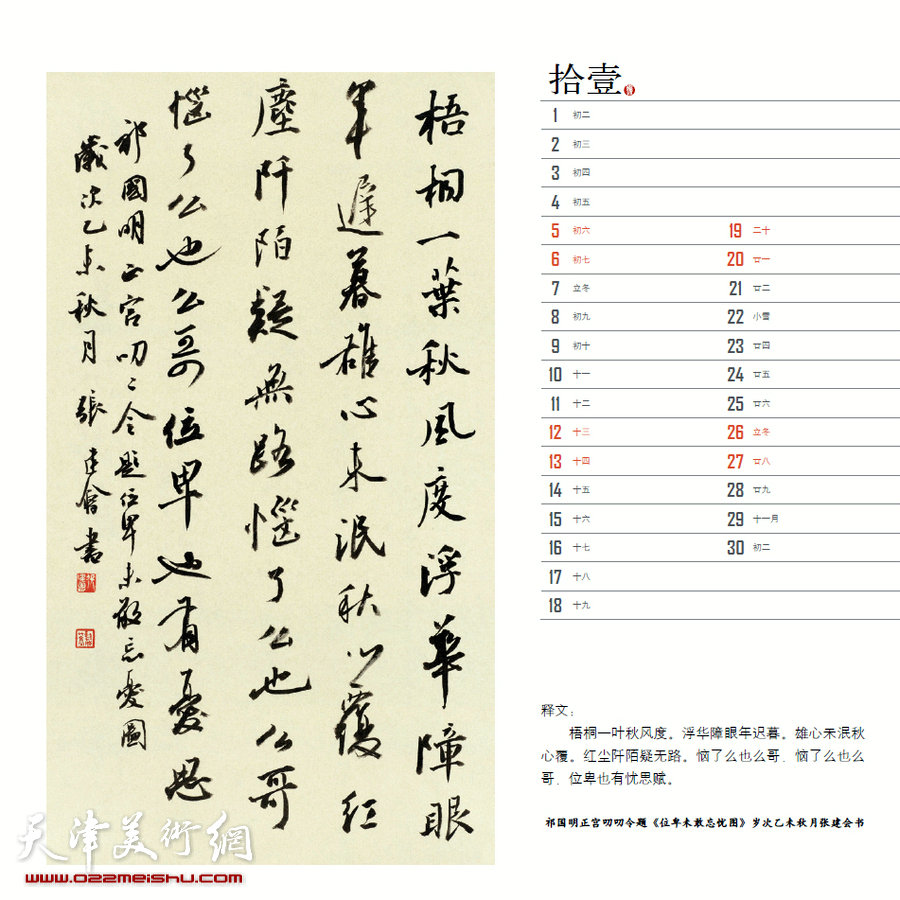 梧桐一葉秋風度浮華障眼
年遲暮雄心未泯秋心覆紅
塵阡陌疑無路惱了么也么哥
惱了么也么哥位卑也有憂思
祁國明正宫叨々令題位卑未敢忘憂圖
歲次乙未秋月張建會書
拾壹
1 初二
2 初三
3 初四
4 初五
5 初六
6 初七
7 立冬
8 初九
9 初十
10 十一
11 十二
12 十三
13 十四
14 十五
15 十六
16 十七
17 十八
18 十九
19 二十
20 廿一
21 廿二
22 小雪
23 廿四
24 廿五
25 廿六
26 立冬
27 廿八
28 廿九
29 十一月
30 初二
释文：
梧桐一叶秋风度。浮华障眼年迟暮。雄心未泯秋
心覆。红尘阡陌疑无路。恼了么也么哥、恼了么也么
哥、位卑也有忧思赋。
祁国明正宫叨叨令题《位卑未敢忘忧图》岁次乙未秋月张建会书
天津美術網
www.022meishu.com